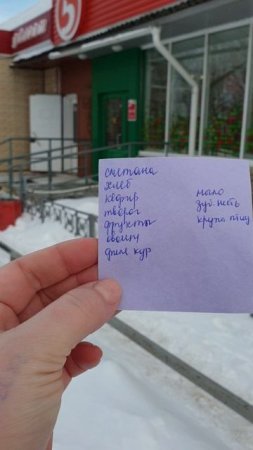 5
сметана
хлеб
кефир
творог
фрукты
овощи
филе кур
мыло
зуб. неть
крупа пшу